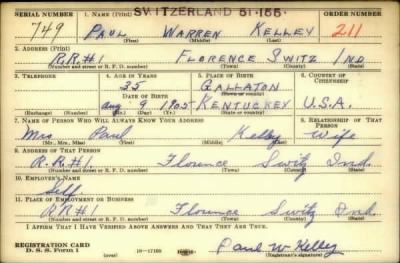 SWITZERLAND 51-155-
SERIAL NUMBER 1. NAME (Print) ORDER NUMBER
749 PAUL WARREN KELLEY 211
(First) (Middle) (Last)
2. ADDRESS (Print)
R.R.#1. FLORENCE SWITZ IND
(Number and street or R. F. D. number) (Town) (County) (State)
3. TELEPHONE 4. AGE IN YEARS 5. PLACE OF BIRTH 6. COUNTRY OF CITIZENSHIP
35 GALLATON
DATE OF BIRTH (Town or county)
Aug 9 1905 KENTUCKEY U.S.A.
(Exchange) (Number) (Mo.) (Day) (Yr.) (State or country)
7. NAME OF PERSON WHO WILL ALWAYS KNOW YOUR ADDRESS 8. RELATIONSHIP OF THAT PERSON
Mrs Paul Kelley Wife
(Mr., Mrs., Miss) (First) (Middle) (Last)
9. ADDRESS OF THAT PERSON
R.R.#1. Florence Switz Ind.
(Number and street or R. F. D. number) (Town) (County) (State)
10. EMPLOYER'S NAME
Self
11. PLACE OF EMPLOYMENT OR BUSINESS
RR#1 Florence Switz Ind.
(Number and street or R. F. D. number) (Town) (County) (State)
I AFFIRM THAT I HAVE VERIFIED ABOVE ANSWERS AND THAT THEY ARE TRUE.
REGISTRATION CARD
D. S. S. Form 1 16-17105 Paul W Kelley
(Registrant's signature)